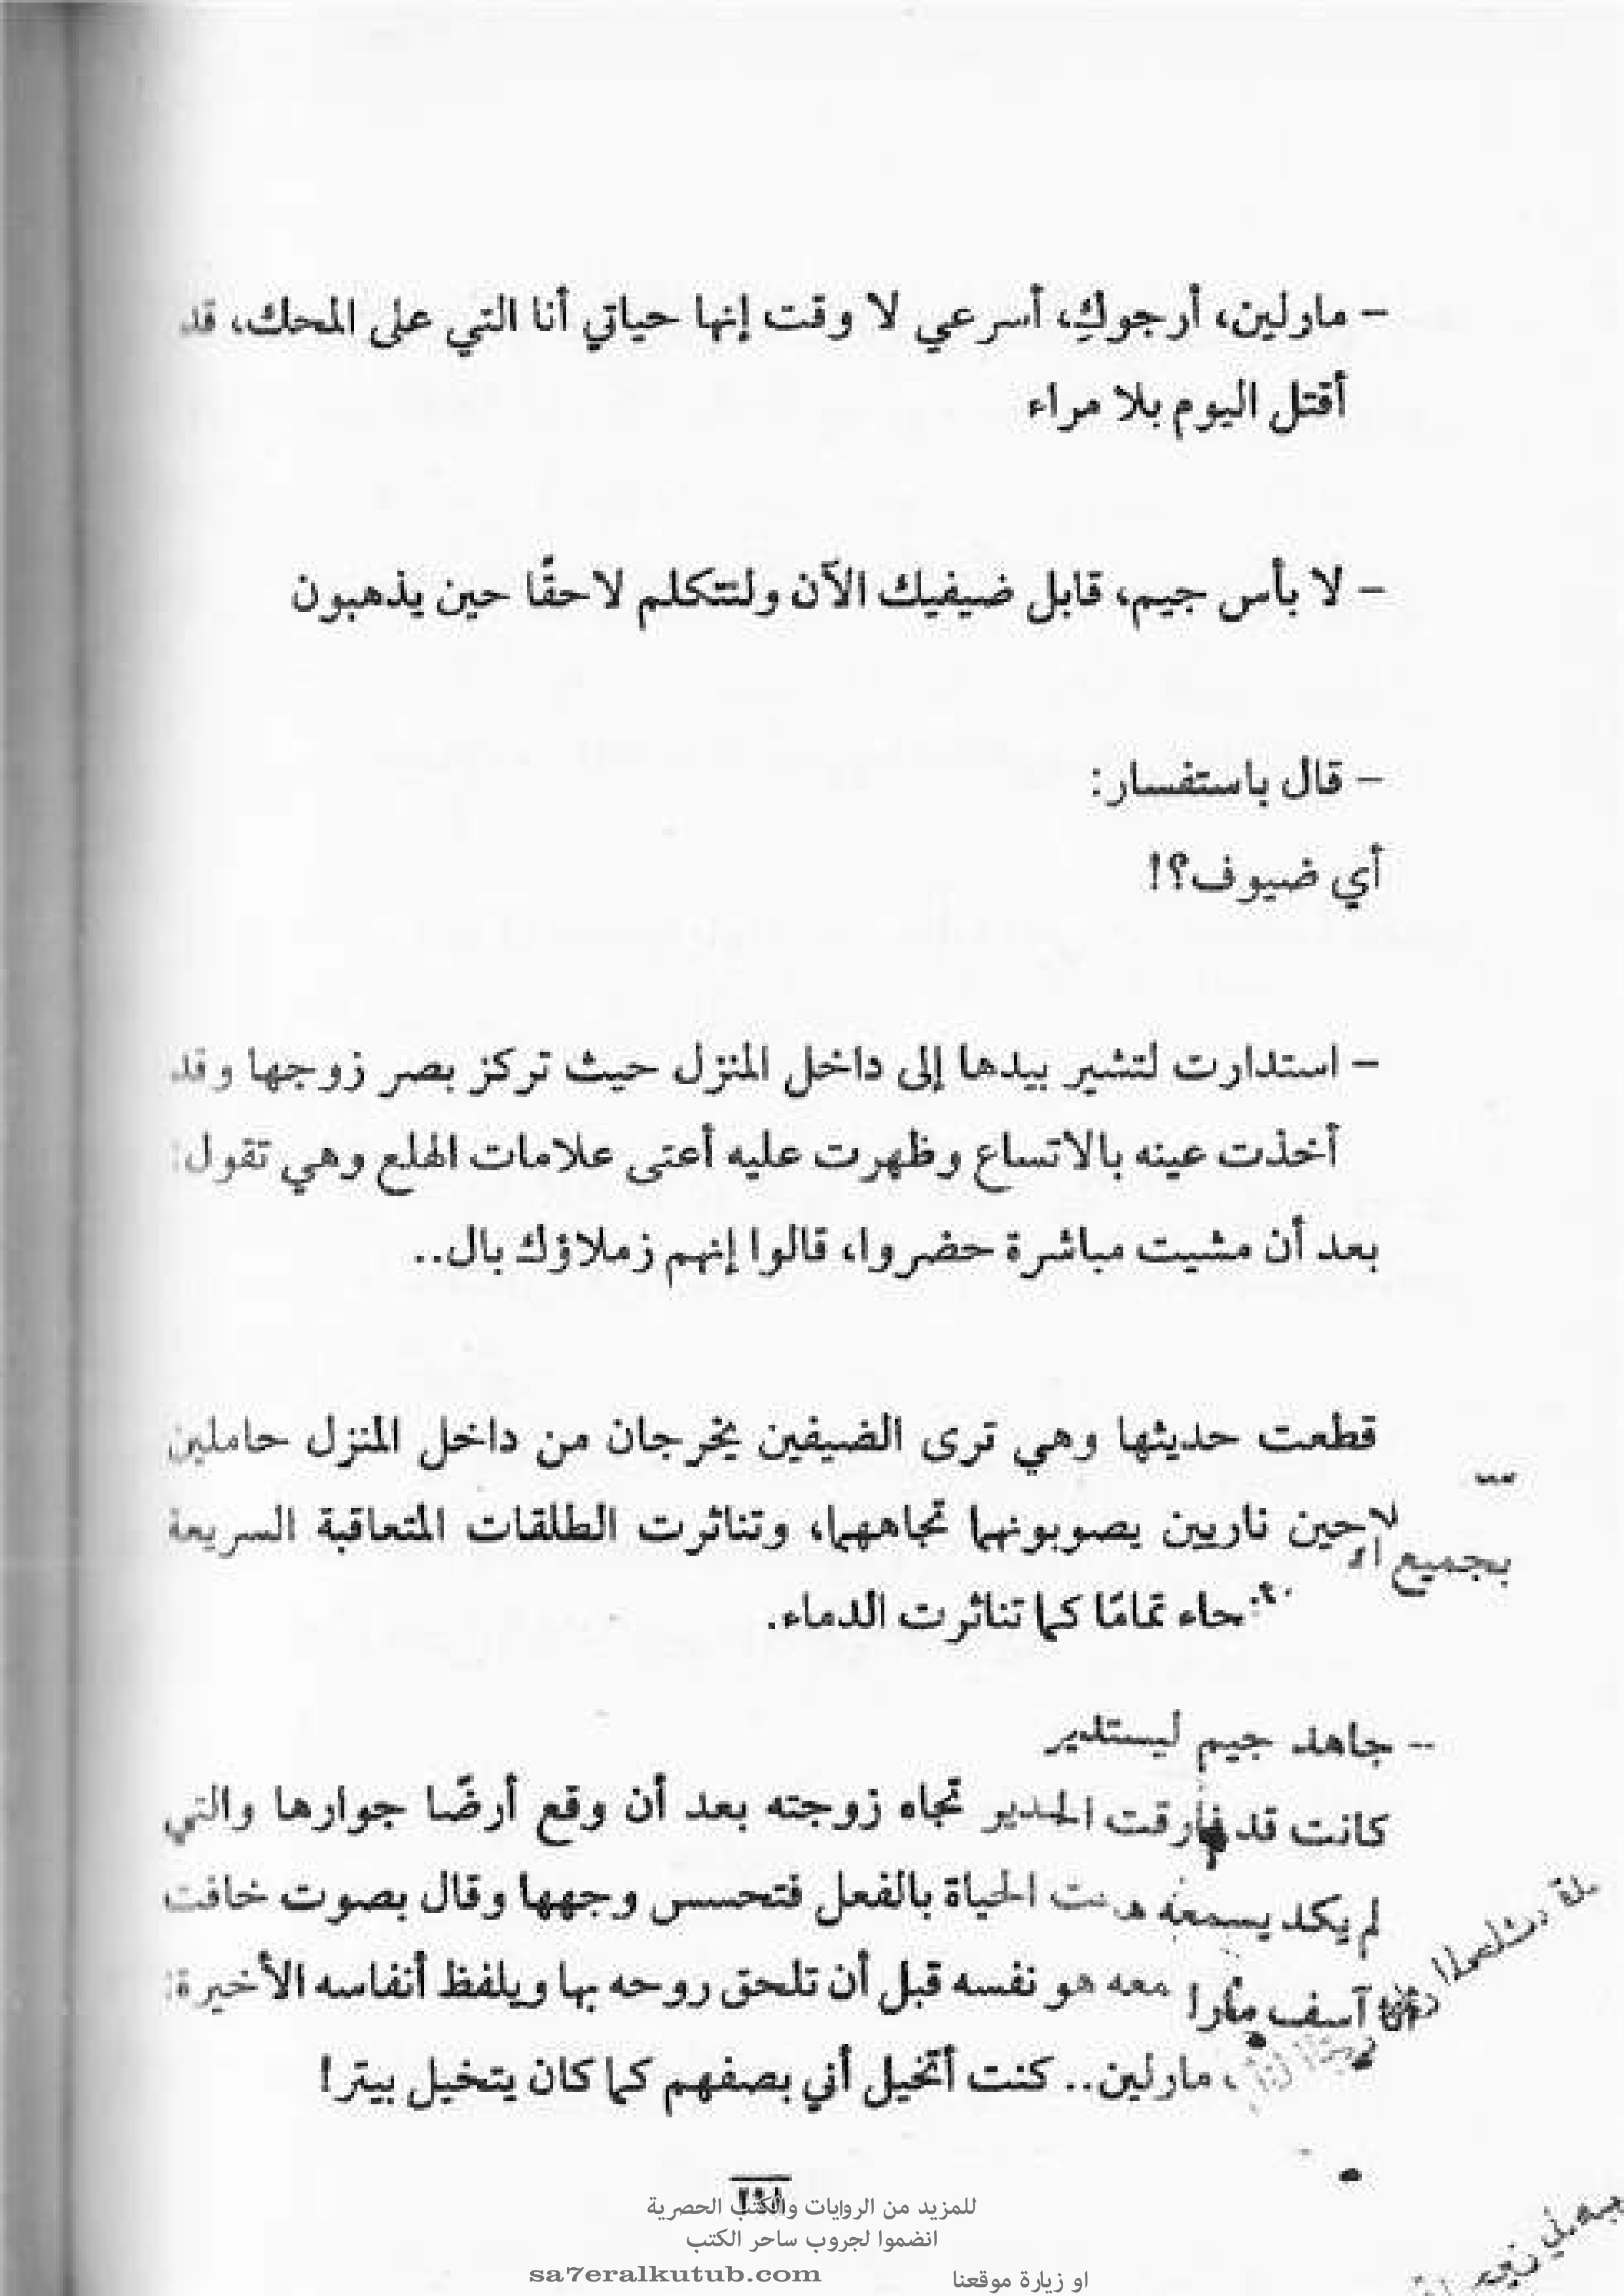 – مارلين، أرجوكِ، أسرعي لا وقت إنها حياتي أنا التي على المحك، قد
أقتل اليوم بلا مراء
– لا بأس جيم، قابل ضيفيك الآن ولنتكلم لاحقًا حين يذهبون
– قال باستفسار:
أي ضيوف؟!
– استدارت لتشير بيدها إلى داخل المنزل حيث تركز بصر زوجها وقد
أخذت عينه بالاتساع وظهرت عليه أعتى علامات الهلع وهي تقول:
بعد أن مشيت مباشرة حضروا، قالوا إنهم زملاؤك بال..
قطعت حديثها وهي ترى الضيفين يخرجان من داخل المنزل حاملين
لاحين ناريين يصوبونهما تجاههما، وتناثرت الطلقات المتعاقبة السريعة
بجميع
حاء تمامًا كما تناثرت الدماء.
-- جاهد جيم ليستدير
تجاه زوجته بعد أن وقع أرضًا جوارها والتي
كانت قد فارقت
الحياة بالفعل فتحسس وجهها وقال بصوت خافت
لم يكد يسمعه
معه هو نفسه قبل أن تلحق روحه بها ويلفظ أنفاسه الأخيرة:
أنا آسف مارا
، مارلين.. كنت أتخيل أني بصفهم كما كان يتخيل بيتر!
للمزيد من الروايات والكتب الحصرية
انضموا لجروب ساحر الكتب
او زيارة موقعنا sa7eralkutub.com